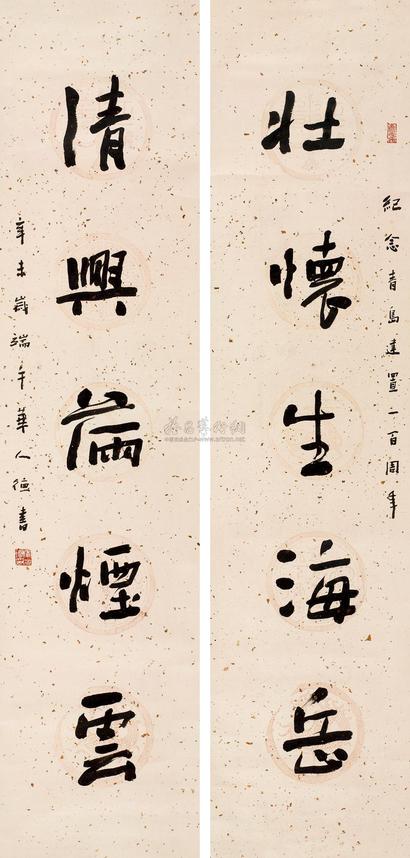 壯懷生海岳
紀念青島建置一百周年
清興滿煙雲
辛未歲端午華人德書